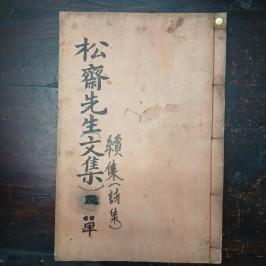 松齋先生(文集)
續集(詩集)
單